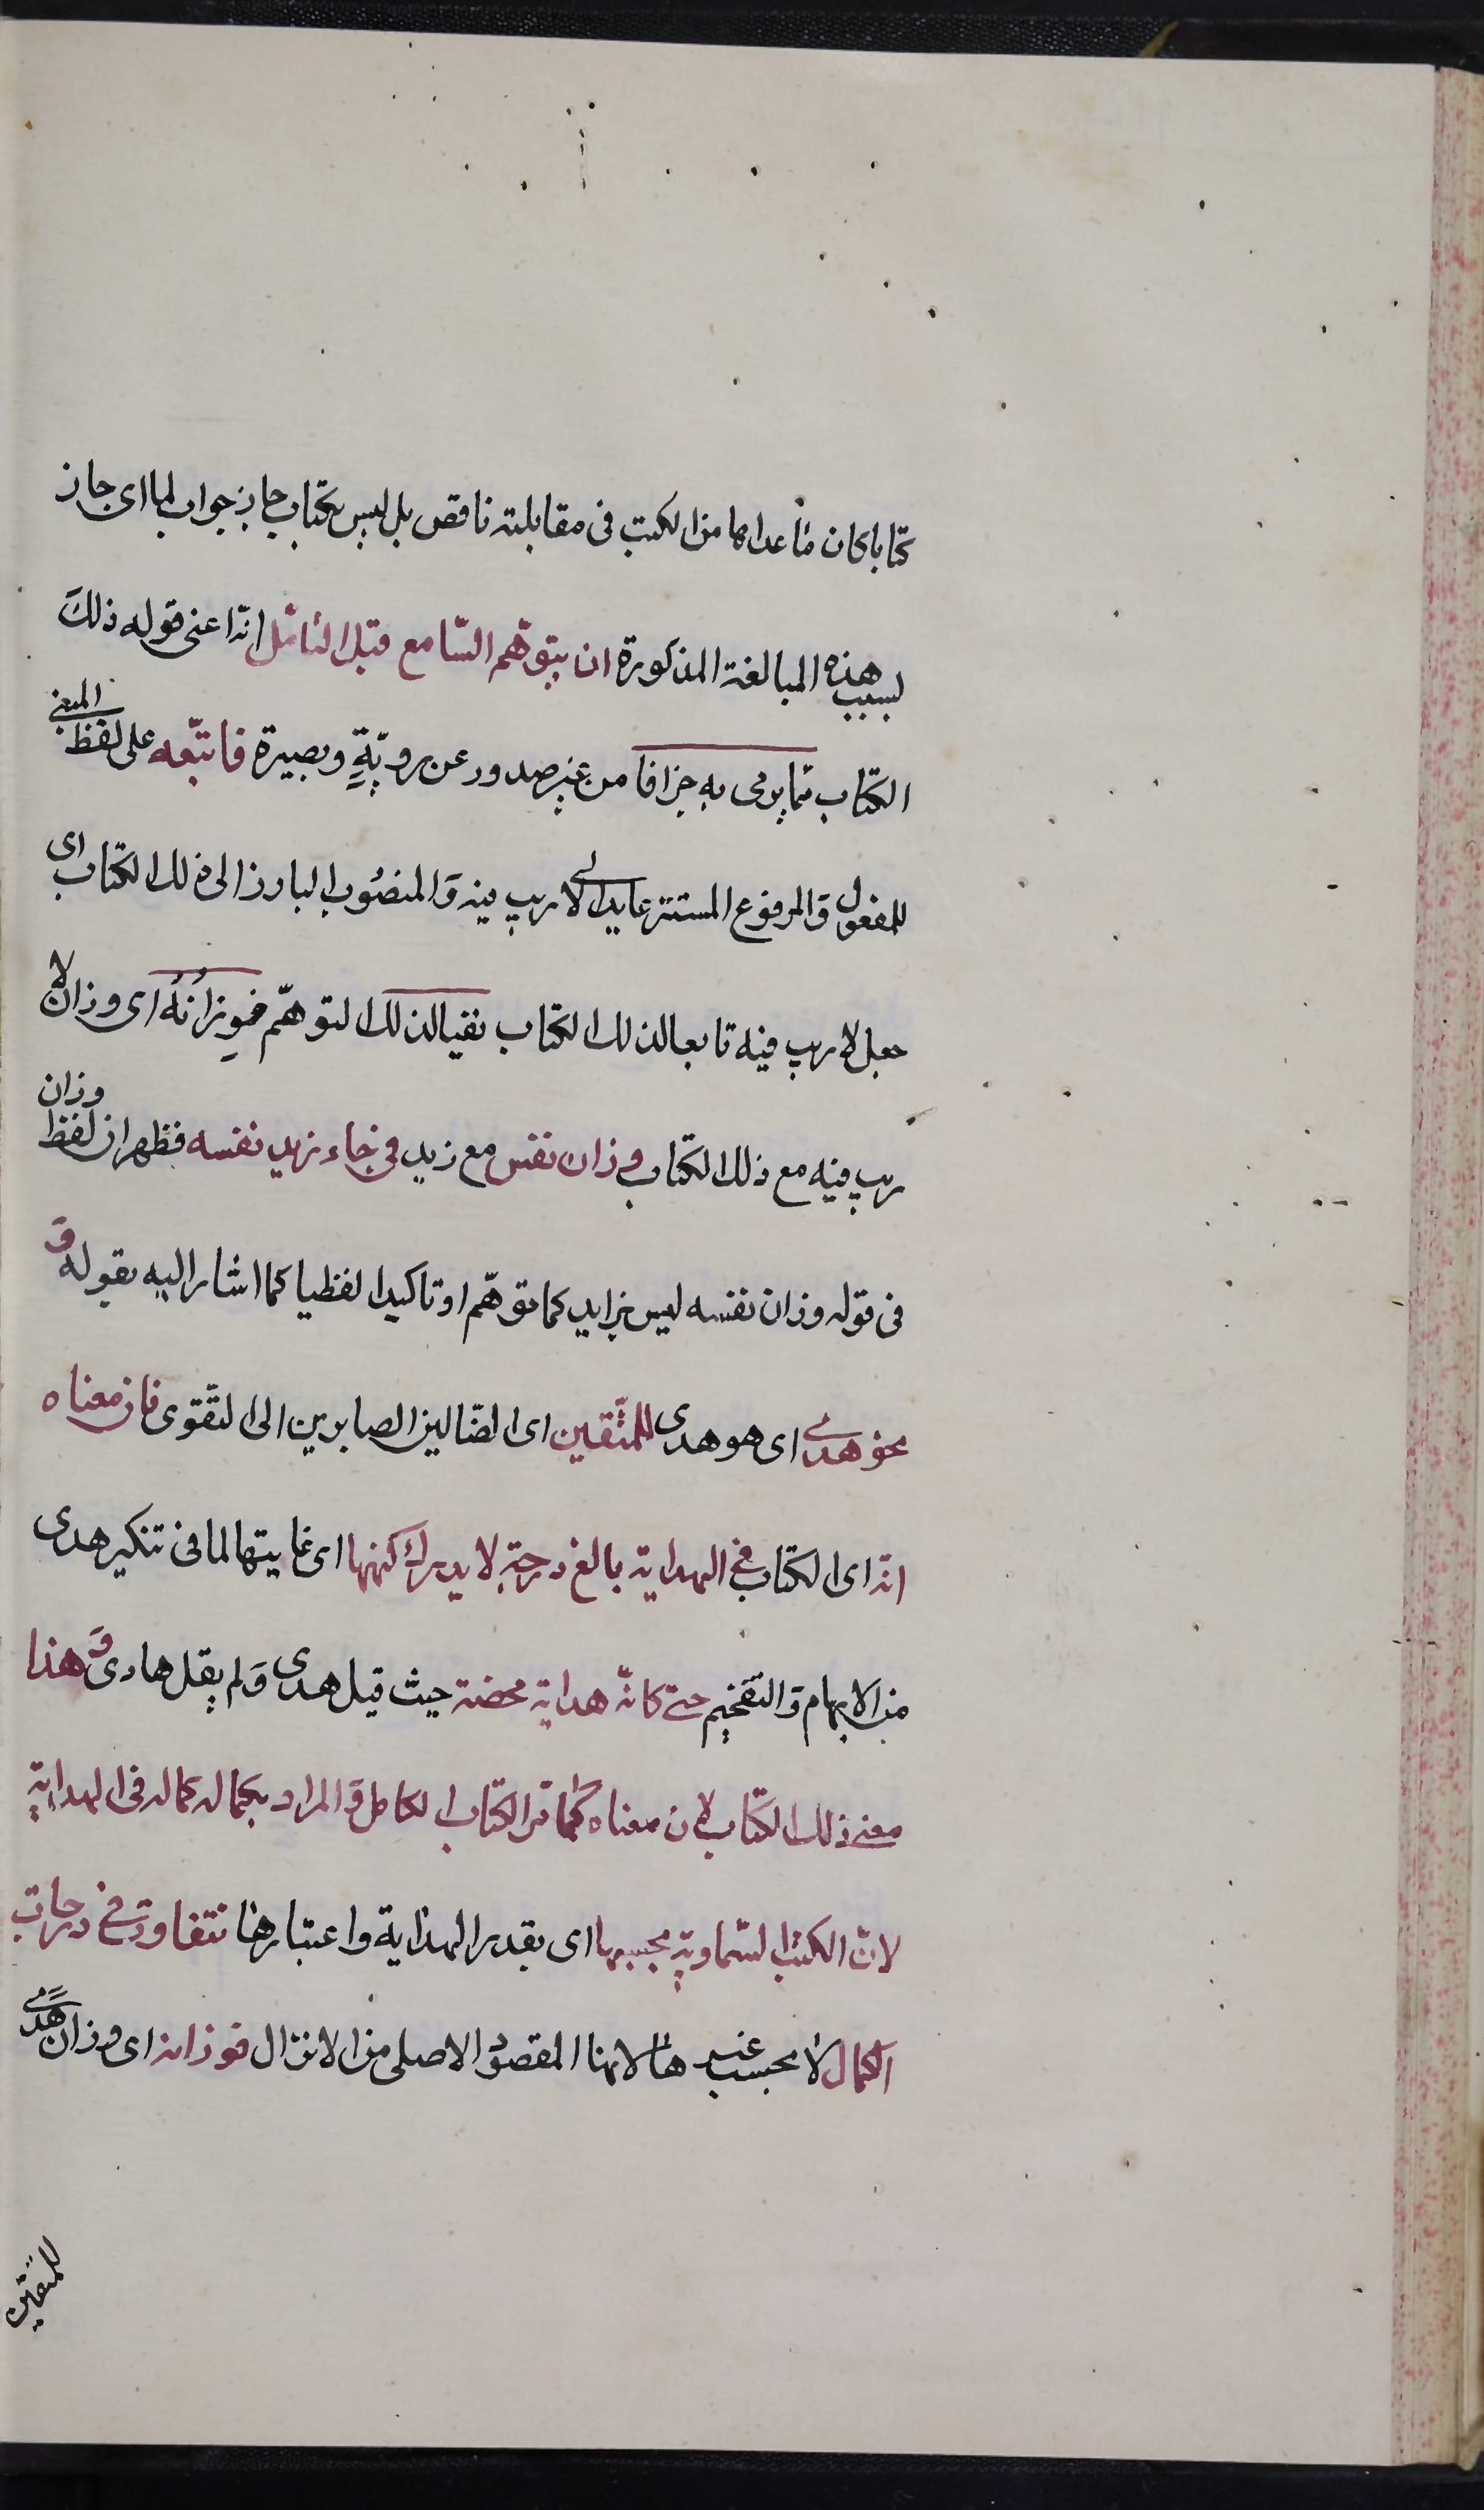 كتابا كان ما عداها من الكتب فى مقابلته ناقص بل ليس بكتاب جاز جواب لما اى جاز
بسبب هذه المبالغة المذكورة ان يتوهّم السّامع قبل التأمّل انّه اعنى قوله ذلك
الكتاب ممّا يرمى به جزافا من غير صدور عن رويّةٍ وبصيرة فاتبّعه على لفظ المبنى
للمفعول وَالمرفوع المستتر عايد الى لا ريب فيه وَالمنصُوب البارز الى ذلك الكتاب اى
جعل لا ريب فيه تابعا لذلك الكتاب نفيا لذلك التوهّم فوِزانُهُ اى وزان لا
ريب فيه مع ذلك الكتاب وزان نفس مع زيد فى جاء زيد نفسه فظهر ان لفظ وزان
فى قوله وزان نفسه ليس بزايد كما توهّم او تاكيدا لفظيا كما اشار اليه بقوله وَ
نحو هدى اى هو هدى للمتّقين اى الضّالين الصايرين الى التّقوى فان معناه
انه اى الكتاب فى الهداية بالغ درجة لا يدرك كنهها اى غايتها لما فى تنكير هدى
من الابهام وَالتفخيم حتى كانّه هداية محضة حيث قيل هدى وَلم يقل هادى وَهذا
معنى ذلك الكتاب لان معناه كما مر الكتاب الكامل وَالمراد بكماله كماله فى الهداية
لانّ الكتب السّماوية بحسبها اى بقدر الهداية واعتبارها تتفاوت فى درجات
الكمال لا بحسب غيرها لانها المقصود الاصلى من الانزال فوزانه اى وزان هُدًى
للمتقين